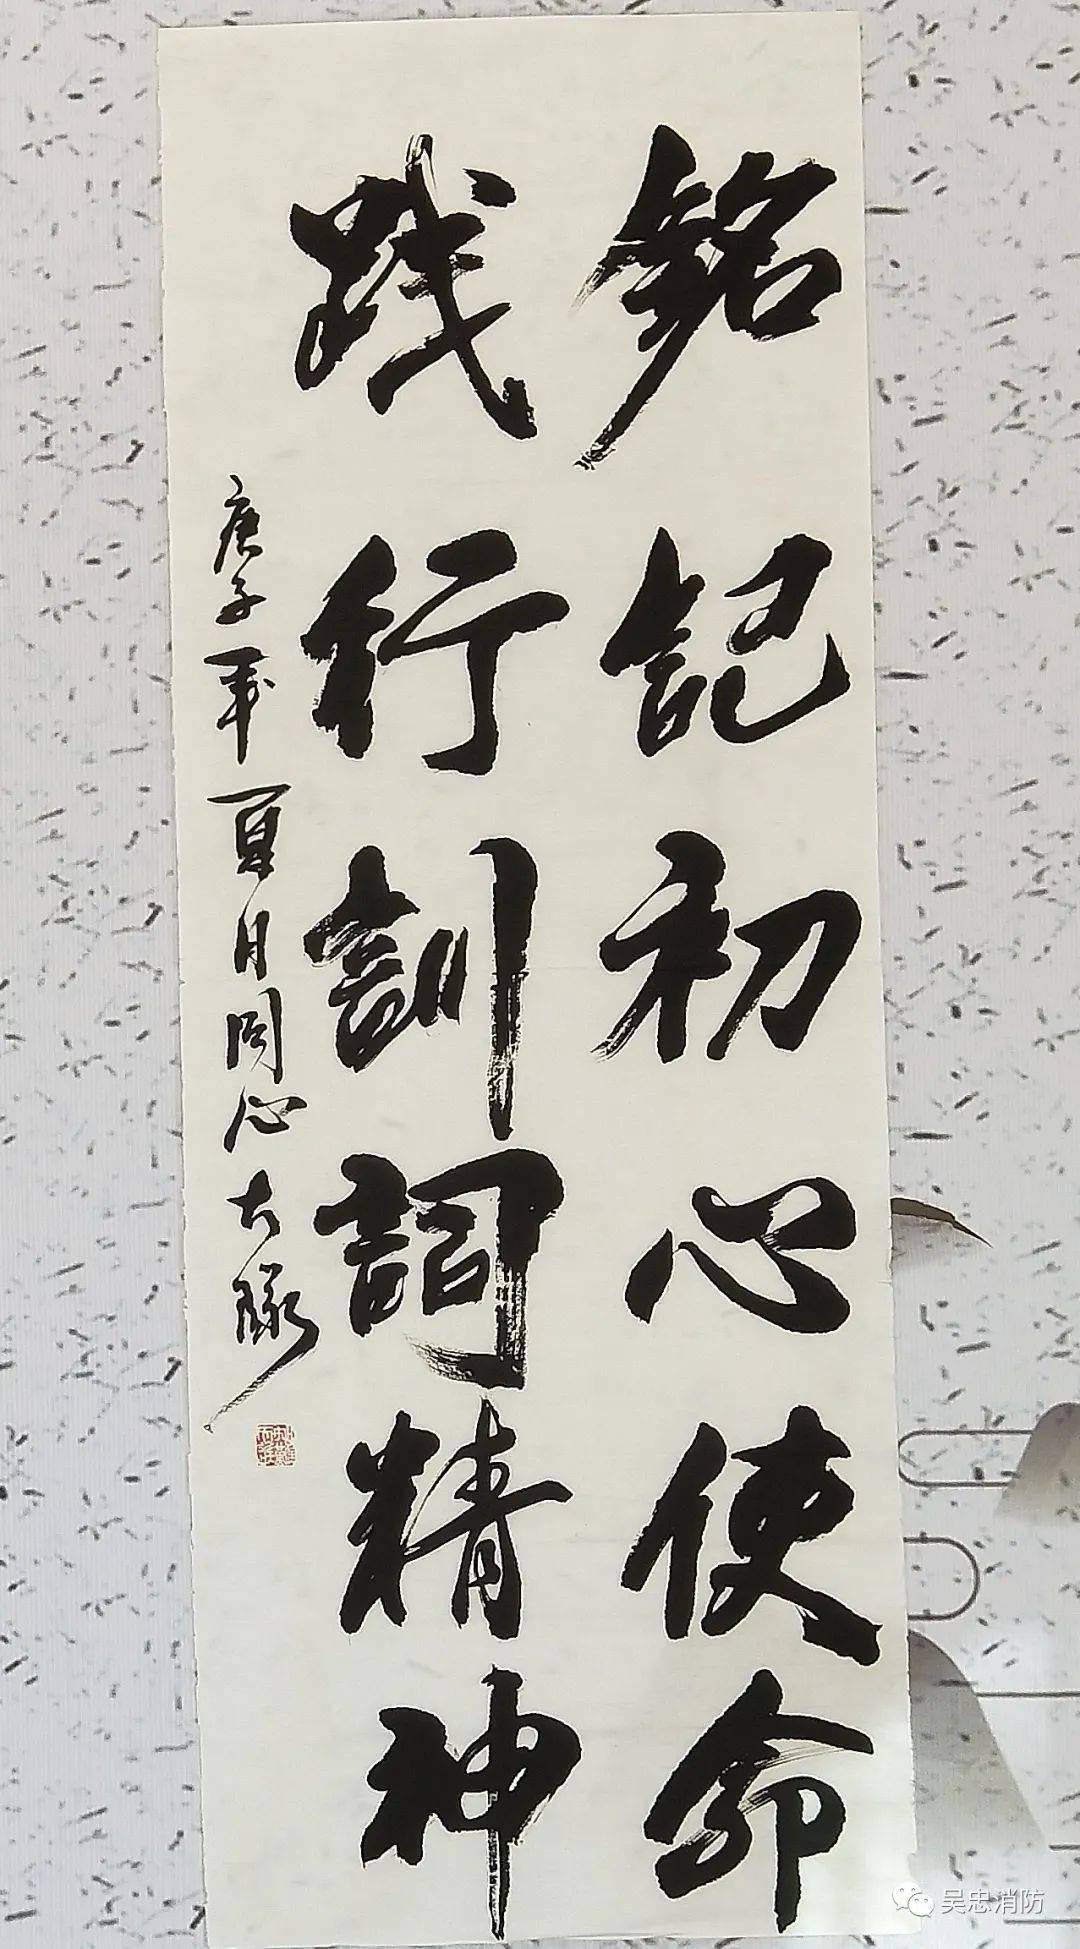 銘記初心使命
践行訓詞精神
庚子年夏月同心大勝
吴忠消防